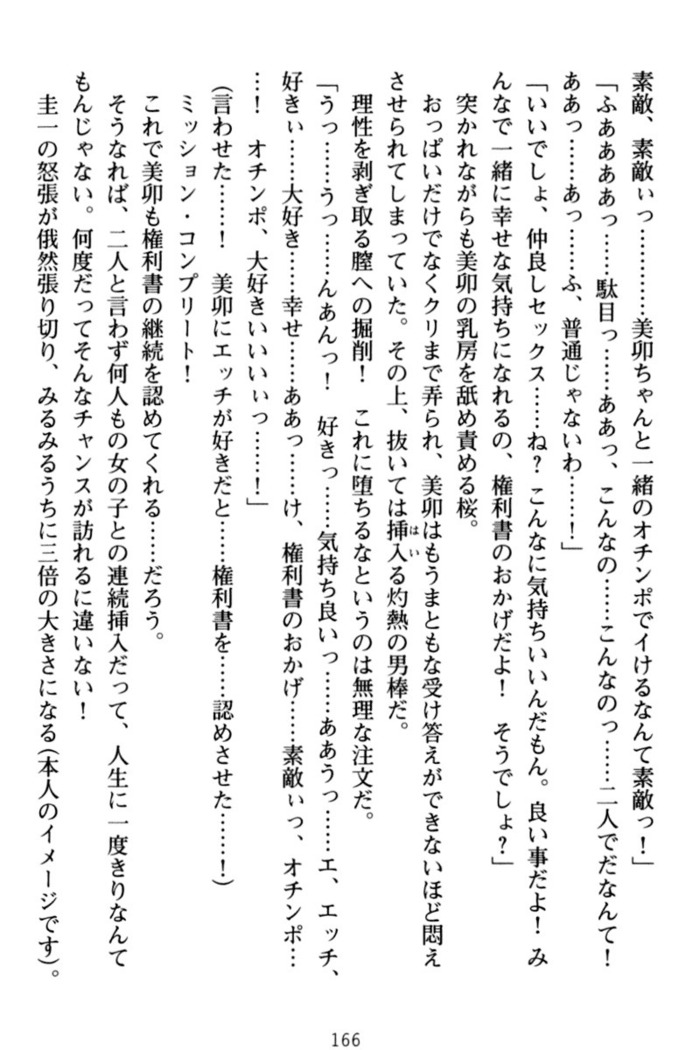 素敵、素敵ぃっ…………美卯ちゃんと一緒のオチンポでイけるなんて素敵っ！」
「ふああああっ……駄目っ……ああっ、こんなの……こんなのっ……二人でだなんて！
ああっ……あっ……ふ、普通じゃないわ……！」
「いいでしょ、仲良しセックス……ね？こんなに気持ちいいんだもん。良い事だよ！み
んなで一緒に幸せな気持ちになれるの、権利書のおかげだよ！　そうでしょ？」
突かれながらも美卯の乳房を舐め責める桜。
おっぱいだけでなくクリまで弄られ、美卯はもうまともな受け答えができないほど悶え
させられてしまっていた。その上、抜いては挿入る灼熱の男棒だ。
理性を剥ぎ取る膣への掘削！　これに堕ちるなというのは無理な注文だ。
「うっ……うっ……んあんっ！　好きっ……気持ち良いっ……ああうっ……エ、エッチ、
好きぃ……大好き……幸せ……ああっ……け、権利書のおかげ……素敵ぃっ、オチンポ…
…！　オチンポ、大好きいいいぃっ……！」
(言わせた……！　美卯にエッチが好きだと……権利書を……認めさせた……！)
ミッション・コンプリート！
これで美卯も権利書の継続を認めてくれる……だろう。
そうなれば、二人と言わず何人もの女の子との連続挿入だって、人生に一度きりなんて
もんじゃない。何度だってそんなチャンスが訪れるに違いない！
圭一の怒張が俄然張り切り、みるみるうちに三倍の大きさになる(本人のイメージです)。
166